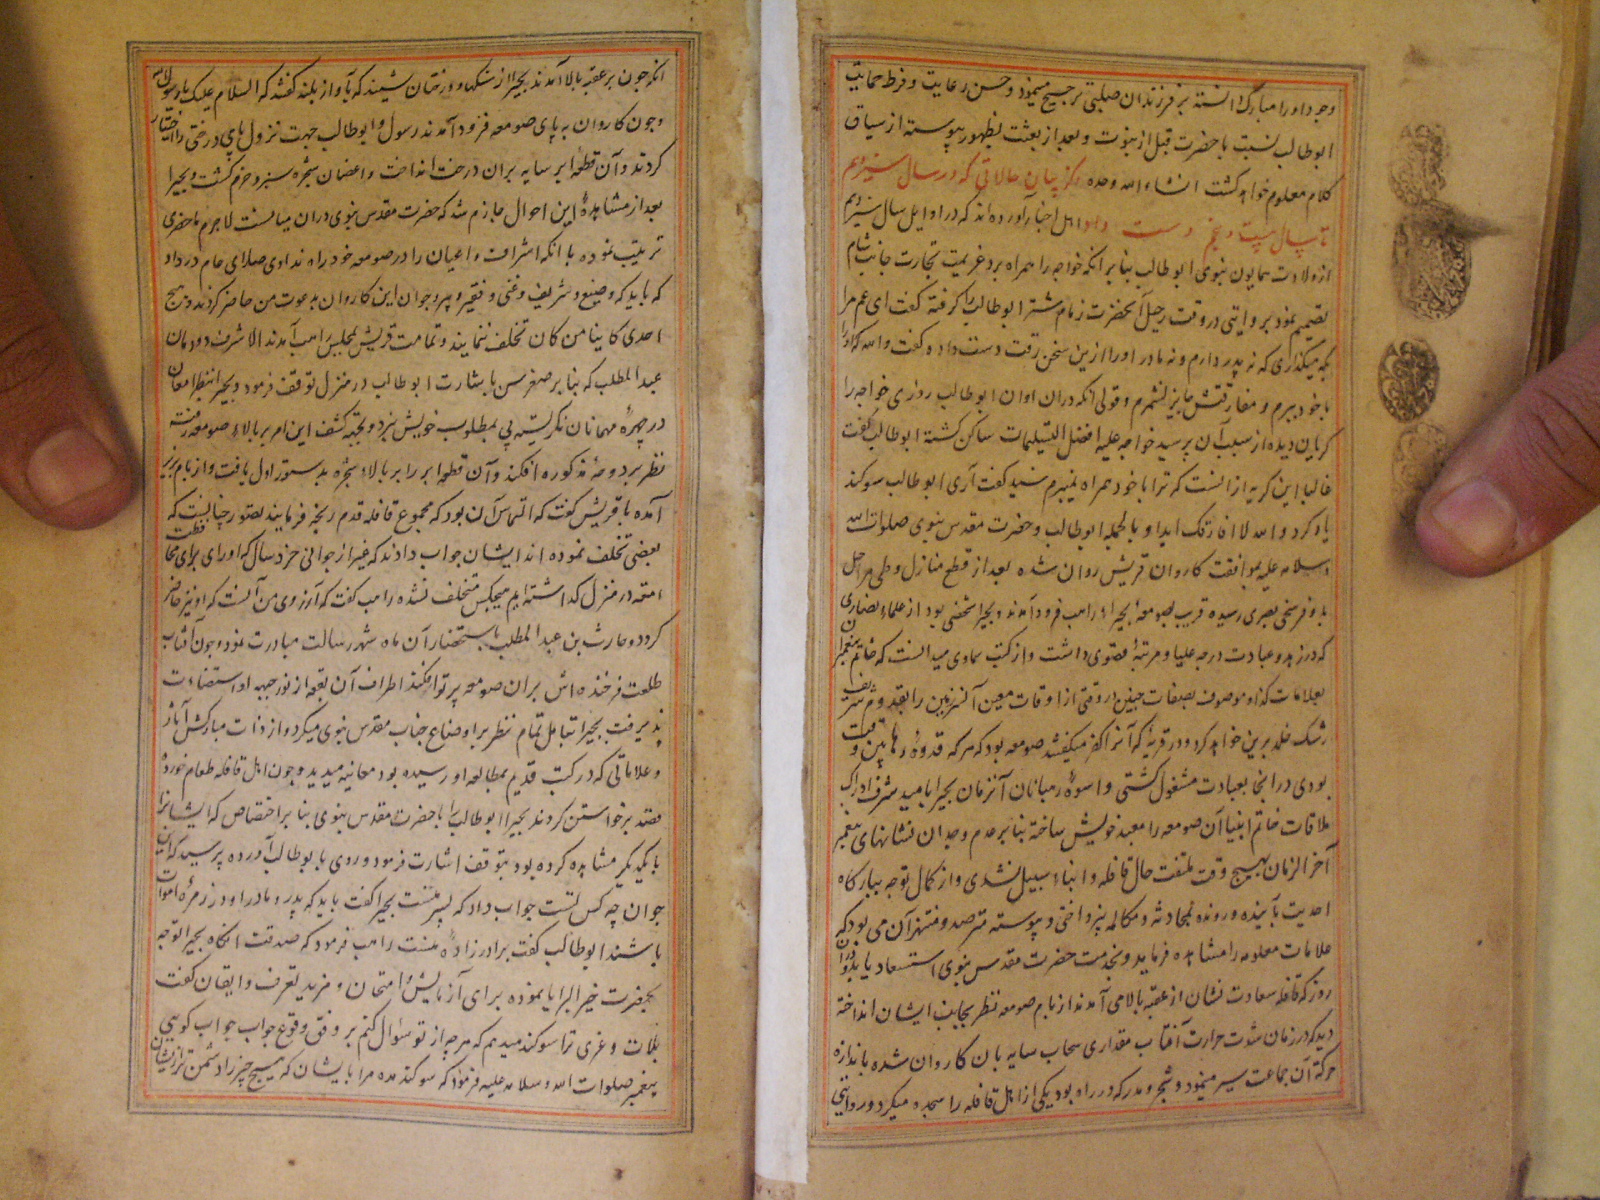 وجود او را مبارک دانسته بر فرزندان صلبی ترجیح مینمود و حسن رعایت و فرط حمایت
ابوطالب نسبت با حضرت قبل از نبوت و بعد از بعثت بظهور پیوسته از سیاق
کلام معلوم خواهد گشت انشاء الله وحده ذکر بیان حالاتی که در سال سیزدهم
تا سال بیست و پنجم دست داد اهل اخبار آورده‌اند که در اوایل سال سیزدهم
از ولادت همایون نبوی ابوطالب بنا بر آنکه خواجه را همراه برد عزیمت تجارت جانب شام
تصمیم نمود بروایتی در وقت رحیل آنحضرت زمام شتر ابوطالب را گرفته گفت ای عم مرا
بکه میگذاری که نه پدر دارم و نه مادر او را ازین سخن رقت دست داده گفت والله که او را
با خود ببرم و مفارقتش جایز نشمرم و قولی آنکه در ان اوان ابوطالب روزی خواجه را
کریان دیده از سبب آن پرسید خواجه علیه افضل التسلیمات ساکن گشته ابوطالب گفت
غالبا این کریه از آنست که ترا با خود همراه نمیبرم سید گفت آری ابوطالب سوکند
یاد کرد والله لا افارقک ابدا و بالجمله ابوطالب و حضرت مقدس نبوی صلوات الله
و سلامه علیه بموافقت کاروان قریش روان شده بعد از قطع منازل و طی مراحل
بدو فرسخی بصری رسیده قریب بصومعه بحیرا راهب فرود آمدند و بحیرا شخصی بود از علماء نصاری
که در زهد و عبادت درجه علیا و مرتبه قصوی داشت و از کتب سماوی میدانست که خاتم پیغمبران
بعلامات کذا و موصوف بصفات چنین در وقتی از اوقات معین آن سرزمین را بقدوم شریف
رشک خلد برین خواهد کرد و در قریه که آنرا کفر میکفتند صومعه بود که هر که قدوه رهابین وقت
بودی در انجا بعبادت مشغول گشتی و اسوه رهبانان آنزمان بحیرا بامید شرف ادراک
ملاقات خاتم انبیا آن صومعه را معبد خویش ساخته بنا بر عدم وجدان نشانهای پیغمبر
آخر الزمان بهیچ وقت ملتفت حال قافله و ابناء سبیل نشدی و از کمال توجه ببارکاه
احدیت با آینده و رونده بمحادثه و مکالمه نپرداختی و پیوسته مترصد و منتهز آن می بود که
علامات معلومه را مشاهده فرماید و بخدمت حضرت مقدس نبوی استسعاد یابد و در ان
روز که قافله سعادت نشان از عقبه بالا می آمدند از بام صومعه نظر بجانب ایشان انداخته
دید که در زمان شدت حرارت آفتاب مقداری سحاب سایه بان کاروان شده باندازه
حرکت آن جماعت سیر مینمود و شجر و مدر که در راه بود یکی از اهل قافله را سجده میکرد و روایتی
آنکه چون بر عقبه بالا آمدند بحیرا از سنکها و درختان شنید که بآواز بلند گفتند که السلام علیک یا رسول الله
و چون کاروان به پای صومعه فرود آمدند رسول و ابوطالب جهت نزول پای درختی را اختیار
کردند و آن قطعه ابر سایه بر ان درخت انداخت و اغصان شجره سبز و خرم گشت و بحیرا
بعد از مشاهده این احوال جازم شد که حضرت مقدس نبوی در ان میانست لاجرم ماحضری
ترتیب نموده با آنکه اشراف و اعیان را در صومعه خود راه ندادی صلای عام در داد
که باید که وضیع و شریف و غنی و فقیر و پیر و جوان این کاروان بدعوت من حاضر کردند و هیچ
احدی کاینا من کان تخلف ننمایند و تمامت قریش بمجلس راهب آمدند الا شرف دودمان
عبدالمطلب که بنا بر صغر سن باشارت ابوطالب در منزل توقف فرمود و بحیرا بنظر امعان
در چهره مهمانان نگریسته پی بمطلوب خویش نبرد و بجهة کشف این امر ببالاء صومعه رفته
نظر بر دوحه مذکوره افکند و آن قطعه ابر را بر بالاء شجره بدستور اول یافت و از بام بزیر
آمده با قریش گفت که التماس آن بود که مجموع قافله قدم رنجه فرمایند بتصور چنانست که
بعضی تخلف نموده اند ایشان جواب دادند که غیر از جوانی خرد سال که او را برای محافظت
امتعه در منزل گذاشته ایم هیچکس متخلف نشده راهب گفت که آرزوی من آنست که او نیز حاضر
کردد و حارث بن عبدالمطلب باستحضار آن ماه سپهر رسالت مبادرت نمود و چون آفتاب
طلعت فرخنده اش بر ان صومعه پرتو افکند اطراف آن بقعه از نور جبهه او استضاءت
پذیرفت بحیرا بتامل تمام نظر بر اوضاع جناب مقدس نبوی میکرد و از ذات مبارکش آثار
و علاماتی که در کتب قدیم بمطالعه او رسیده بود معاینه میدید و چون اهل قافله طعام خورده
قصد برخواستن کردند بحیرا ابوطالب را با حضرت مقدس نبوی بنا بر اختصاص که ایشانرا
با یکدیگر مشاهده کرده بود بتوقف اشارت فرمود و روی بابوطالب آورده پرسید که این
جوان چه کس تست جواب داد که پسر منست بحیرا گفت باید که پدر و مادر او در زمره اموات
باشند ابوطالب گفت برادر زاده منست راهب فرمود که صدقت انکاه بحیرا توجه
بحضرت خیر البرایا نموده برای آزمایش و امتحان و مزید تعرف و ایقان گفت
بلات و عزی ترا سوکند میدهم که هر چه از تو سؤال کنم بر وفق وقوع جواب جواب کویی
پیغمبر صلوات الله و سلامه علیه فرمود که سوکند مده مرا بایشان که هیچ چیز را دشمن تر از ایشان